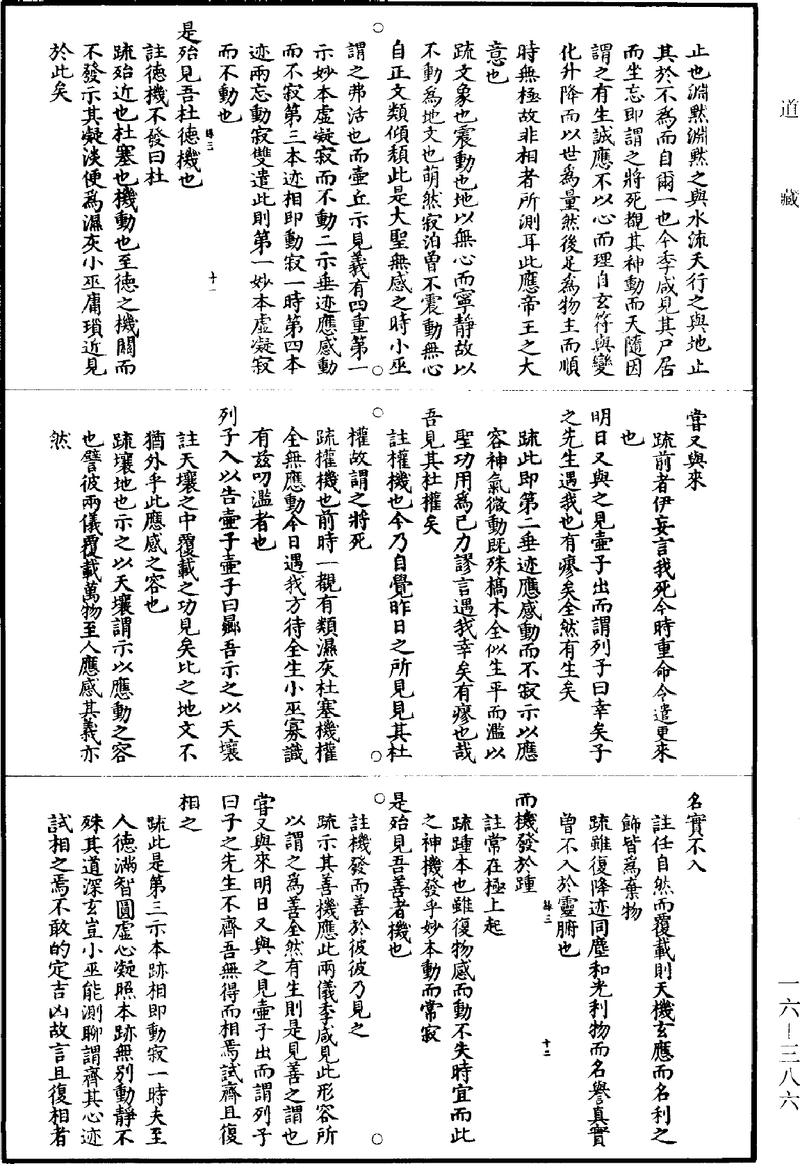 道藏
止也淵黙淵黙之與水流天行之與地止
其於不為而自爾一也今季咸見其尸居
而坐忘即謂之將死覩其神動而天隨因
謂之有生誠應不以心而理自玄符與變
化升降而以世為量然後足為物主而順
時無極故非相者所測耳此應帝王之大
意也
疏文象也震動也地以無心而寧靜故以
不動為地文也萌然寂泊曾不震動無心
自正文類傾頽此是大聖無感之時小巫
謂之弗活也而壺丘示見義有四重第一
示妙本虛凝寂而不動二示垂迹應感動
而不寂第三本迹相即動寂一時第四本
迹兩忘動寂雙遣此則第一妙本虛凝寂
而不動也
是殆見吾杜德機也
註德機不發曰杜
疏殆近也杜塞也機動也至德之機關而
不發示其凝淡便為濕灰小巫庸瑣近見
於此矣
嘗又與來
疏前者伊妄言我死今時重命令遣更來
也
明日又與之見壺子出而謂列子曰幸矣子
之先生遇我也有瘳矣全然有生矣
疏此即第二垂迹應感動而不寂示以應
容神氣微動既殊槁木全似生平而濫以
聖功用為己力謬言遇我幸矣有瘳也哉
吾見其杜權矣
註權機也今乃自覺昨日之所見見其杜
權故謂之將死
疏權機也前時一覩有類濕灰杜塞機權
全無應動今日遇我方待全生小巫寡識
有茲叨濫者也
列子入以告壺子壺子曰曏吾示之以天壤
註天壤之中覆載之功見矣比之地文不
猶外乎此應感之容也
疏壤地也示之以天壤謂示以應動之容
也譬彼兩儀覆載萬物至人應感其義亦
然
名實不入
註任自然而覆載則天機玄應而名利之
飾皆為棄物
疏雖復降迹同塵和光利物而名譽真實
曾不入於靈腑也
而機發於踵
註常在極上起
疏踵本也雖復物感而動不失時宜而此
之神機發乎妙本動而常寂
是殆見吾善者機也
註機發而善於彼彼乃見之
疏示其善機應此兩儀季咸見此形容所
以謂之為善全然有生則是見善之謂也
嘗又與來明日又與之見壺子出而謂列子
曰子之先生不齊吾無得而相焉試齊且復
相之
疏此是第三示本跡相即動寂一時夫至
人德滿智圓虛心凝照本跡無別動靜不
殊其道深玄豈小巫能測聊謂齊其心迹
試相之焉不敢的定吉凶故言且復相者
十一
十二
一六—三八六